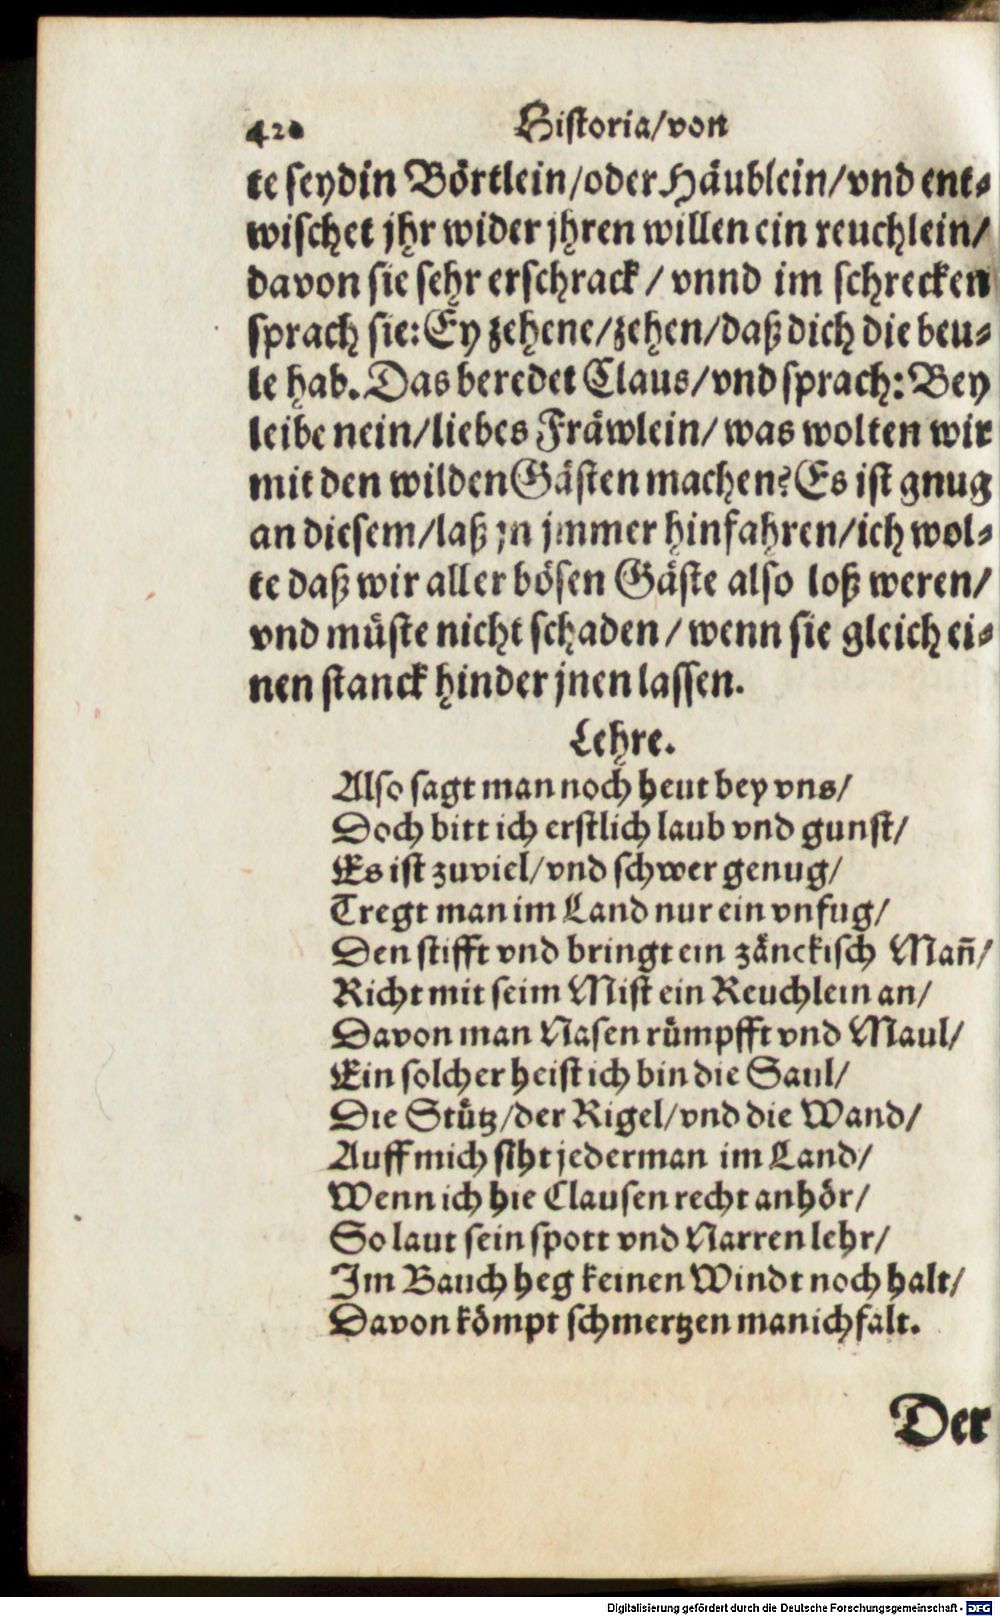 420 Historia/von
te seydin Börtlein/oder Häublein/vnd ent-
wischet jhr wider jhren willen ein reuchlein/
davon sie sehr erschrack / vnnd im schrecken
sprach sie: Ey zehene/zehen/daß dich die beu-
le hab. Das beredet Claus/vnd sprach: Bey
leibe nein/liebes Fräwlein/ was wolten wir
mit den wilden Gästen machen? Es ist gnug
an diesem/laß jn jmmer hinfahren/ich wol-
te daß wir aller bösen Gäste also loß weren/
vnd müste nicht schaden / wenn sie gleich ei-
nen stanck hinder jnen lassen.
Lehre.
Also sagt man noch heut bey vns/
Doch bitt ich erstlich laub vnd gunst/
Es ist zuviel/vnd schwer genug/
Tregt man im Land nur ein vnfug/
Den stifft vnd bringt ein zänckisch Man̄/
Richt mit seim Mist ein Reuchlein an/
Davon man Nasen rümpfft vnd Maul/
Ein solcher heist ich bin die Saul/
Die Stütz/der Rigel/vnd die Wand/
Auff mich siht jederman im Land/
Wenn ich hie Clausen recht anhör/
So laut sein spott vnd Narren lehr/
Im Bauch heg keinen Windt noch halt/
Davon kömpt schmertzen manichfalt.
Der
Digitalisierung gefördert durch die Deutsche Forschungsgemeinschaft - DFG